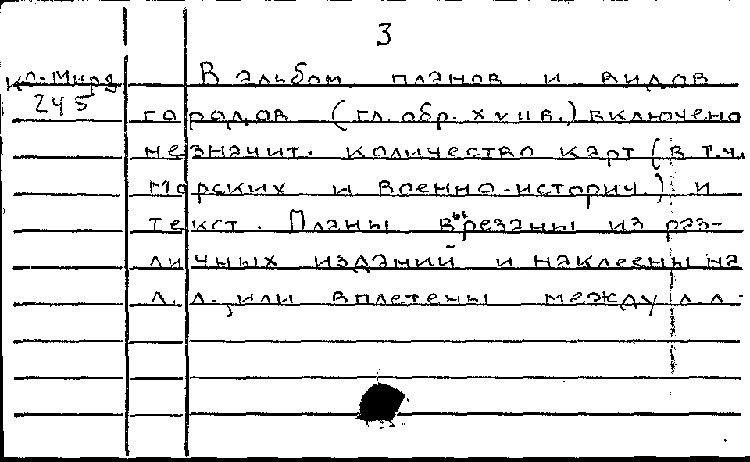 3
Кл. Мира В альбом планов и видов
245 городов (гл. обр. XVII в.) включено
незначит. количество карт (в т.ч.
морских и военно-историч.) и
текст. Планы вырезаны из раз-
личных изданий и наклеены на
л.л., или вплетены между л.л.